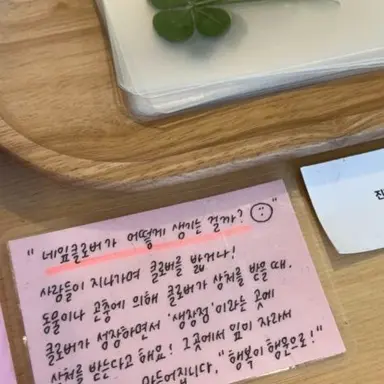 "네잎클로버가 어떻게 생기는 걸까? 
사람들이 지나가며 클로버를 밟거나!
동물이나 곤충에 의해 클로버가 상처를 받을 때.
클로버가 성장하면서 '생장점'이라는 곳에
상처를 받는다고 해요! 그곳에서 잎이 자라서
만들어집니다. "행복이 행운으로!"
진